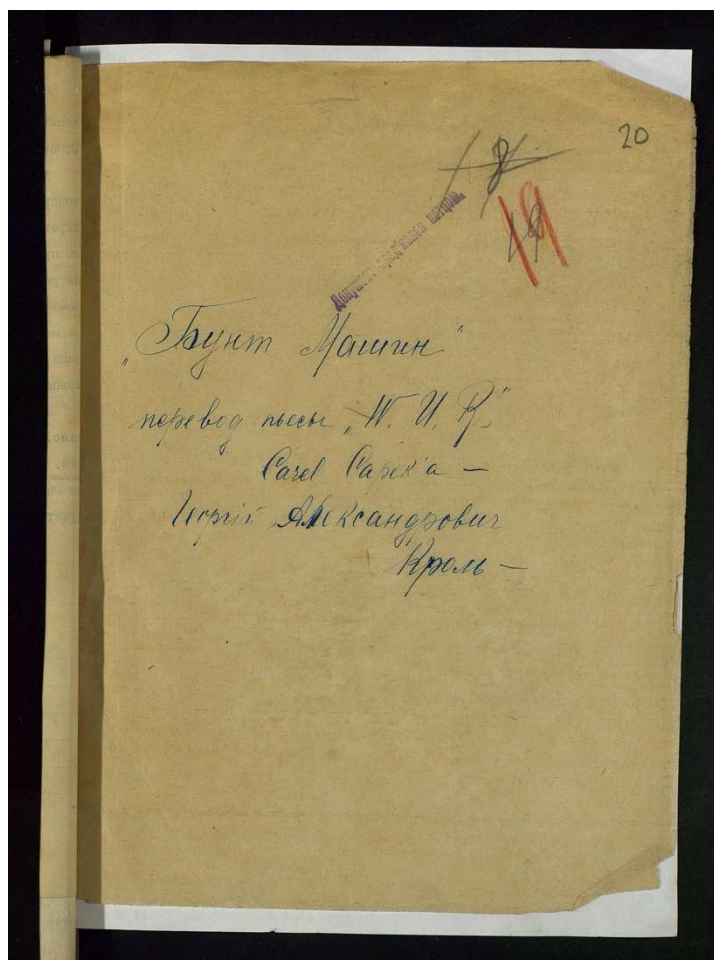 20
8
19
19
„Бунт Машин"
перевод пьесы „W. U. R."
Carel Capek'а —
Георгій Александрович
Кроль —